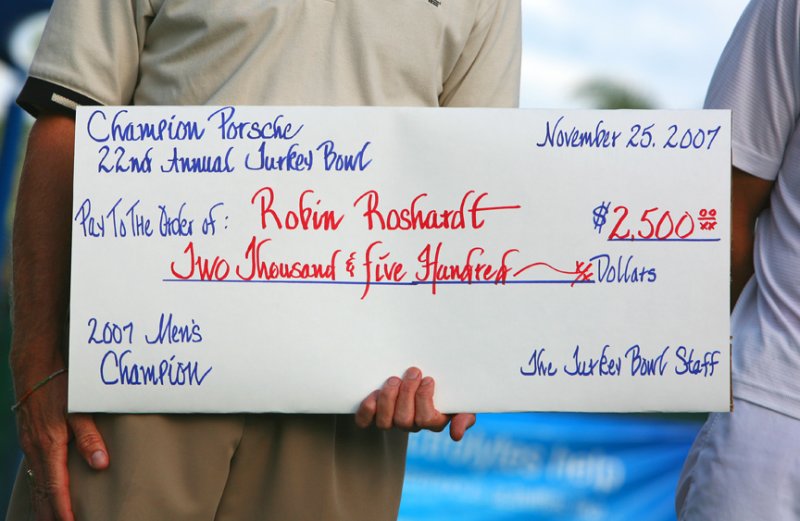 Champion Porsche
22nd Annual Turkey Bowl
November 25. 2007
Pay To The Order of: Robin Roshardt $2,500 00/xx
Two Thousand & five Hundred xx Dollars
2007 Men's
Champion
The Turkey Bowl Staff
help